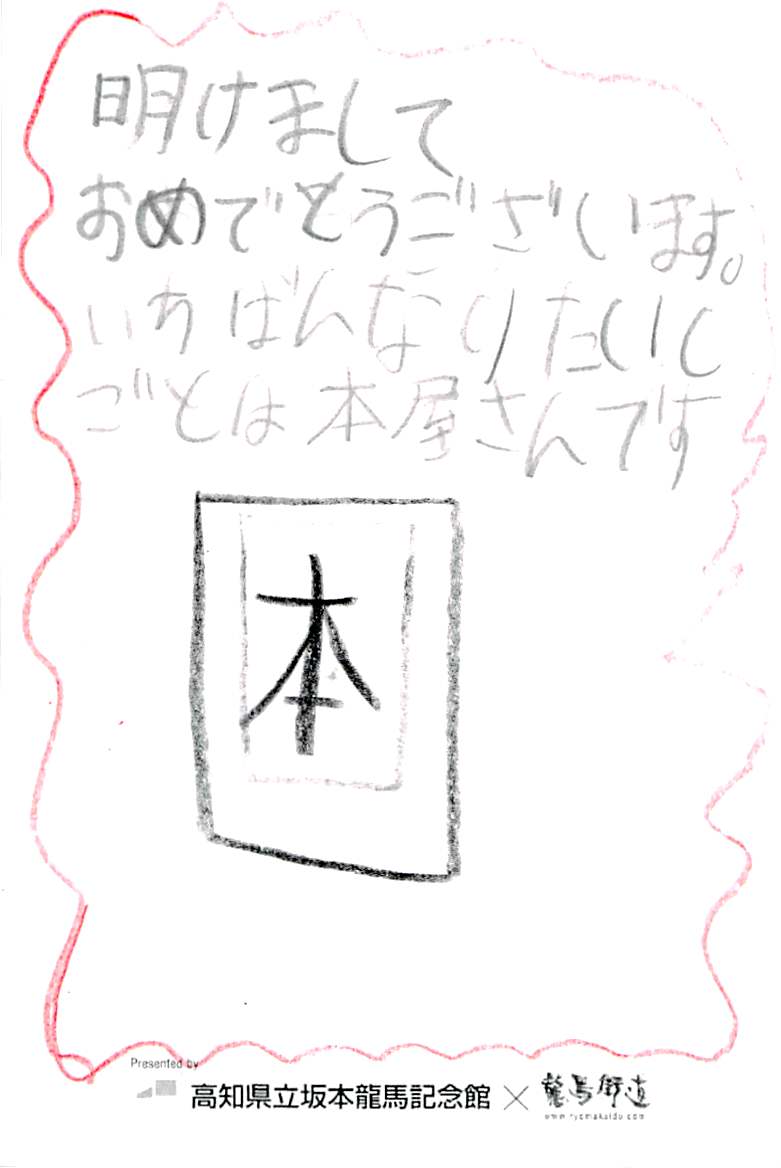 明けまして
おめでとうございます。
いちばんなりたいし
ごとは本屋さんです
本
Presented by
高知県立坂本龍馬記念館×龍馬街道
www.ryomakaido.com